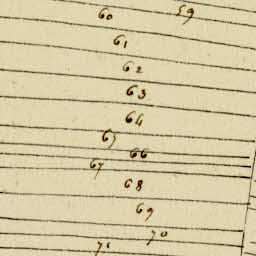 60 59
61
62
63
64
65
66
67
68
69
70
71